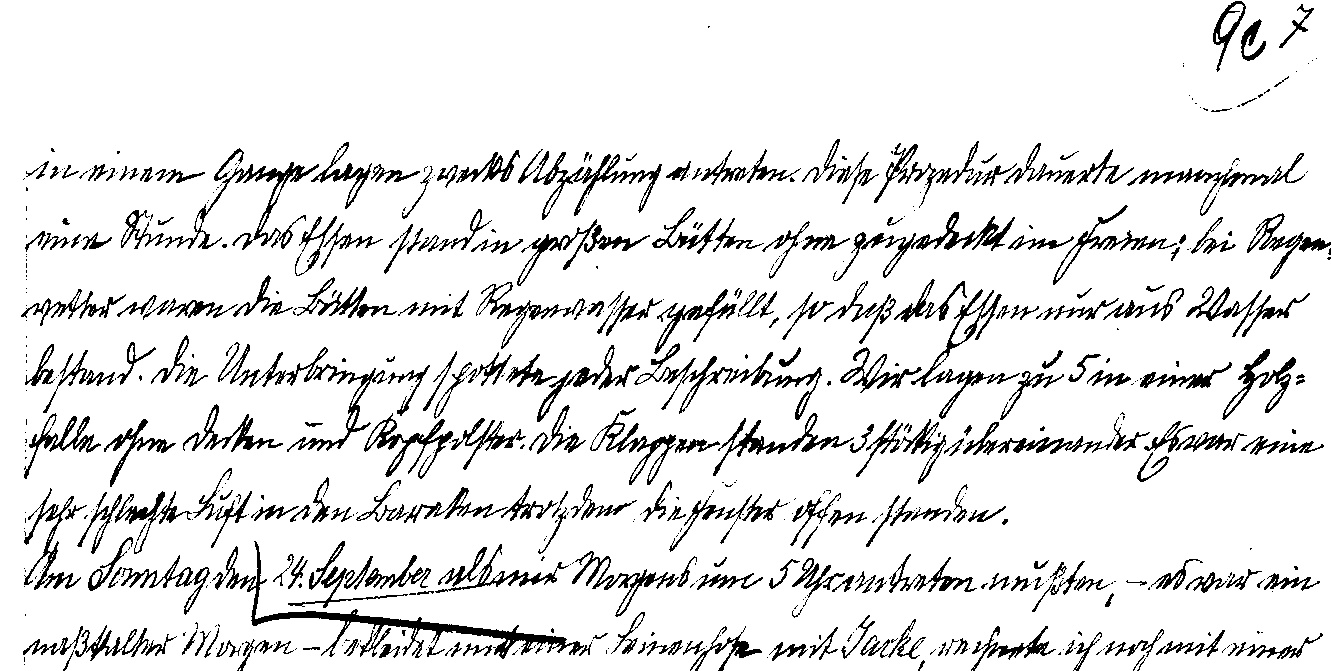 9c 7
in einem Gange lagen zwecks Abzählung antreten. Diese Prozedur dauerte manchmal
eine Stunde. Das Essen stand in großen Bütten ohne zugedeckt im Freien; bei Regen-
wetter waren die Bütten mit Regenwasser gefüllt, so daß das Essen nur aus Wasser
bestand. Die Unterbringung spottete jeder Beschreibung. Wir lagen zu 5 in einer Holz-
falle ohne Decken und Kopfpolster. Die Klappen standen 3 stöckig übereinander. Es war eine
sehr schlechte Luft in den Baraken trotzdem die Fenster offen standen.
Am Sonntag den 24. September als wir Morgens um 5 Uhr antreten mußten, – es war ein
naßkalter Morgen – bekleidet mit einer Leinenhose mit Jacke, rechnete ich noch mit einer